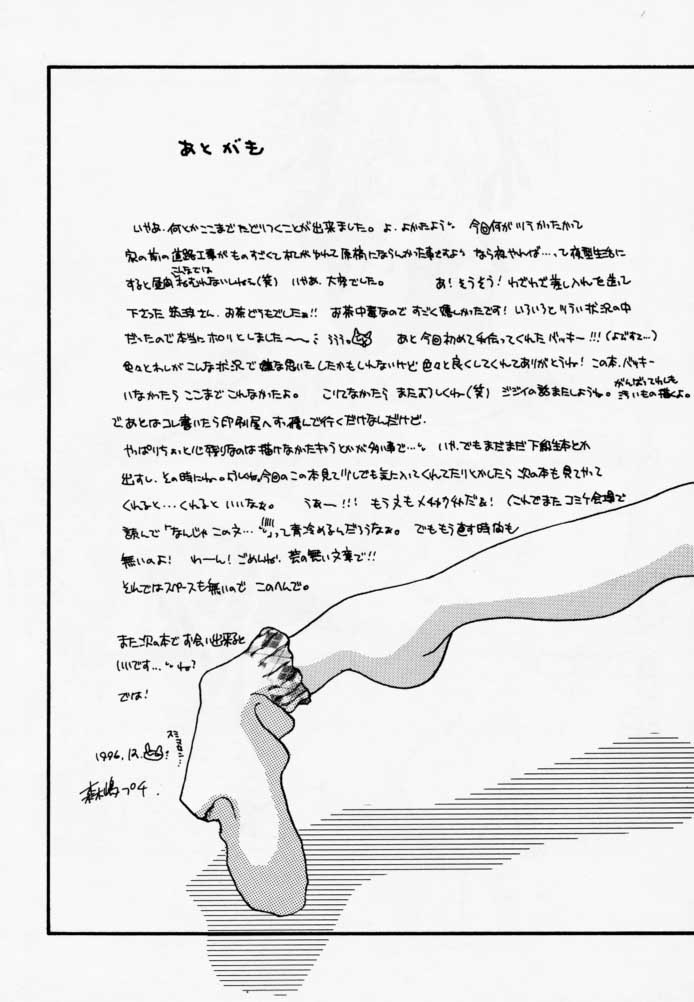 あとがき
いやあ、何とかここまでたどりつくことが出来ました。よ、よかったよう 今回何がツラかったかって
家の前の道路工事がものすごくて机がゆれて原稿にならんかった事ですよう なら夜やれば…って夜型生活に
すると昼間ねむれないしねぇ(笑) いやあ、大変でした。 あ!そうそう!わざわざ差し入れを送って
こんなでは
下さった さん、お茶どうもでしたぁ!!お茶中毒なのですごく嬉しかったです!いろいろとツライ状況の中
だったので本当にホロリとしました〜〜 あと今回初めて手伝ってくれたバッキー!!!(よびすて…)
色々とわしがこんな状況で嫌な思いもしたかもしれないけど色々と良くしてくれてありがとうね!この本、バッキー
いなかったらここまでこれなかったよ。 こりてなかったらまたよろしくねー(笑) ジジイの話またしようね。
がんばってわしも
渋いもの描くよ。
であとはコレ書いたら印刷屋へすっ飛んで行くだけなんだけど、
やっぱりちょっと心残りなのは描けなかったキャラとかが多い事で… いや、でもまだまだ下級生本とか
出すし、その時にね。らいしゅ、今回のこの本見て少しでも気に入ってくれてたりとかしたら次の本も見てやって
くれると…くれるといいなぁ。 うあー!!!もう文もメチャクチャだぁ!(これでまたコミケ会場で
読んで「なんじゃこの文…」って青冷めるんだろうなぁ。でももう直す時間も
無いのよ!わーん!ごめんね、芸の無い文章で!!
それではスペースも無いのでこのへんで。
また次の本でお会い出来ると
いいです…ね?
では!
1996.12.
森嶋プチ.